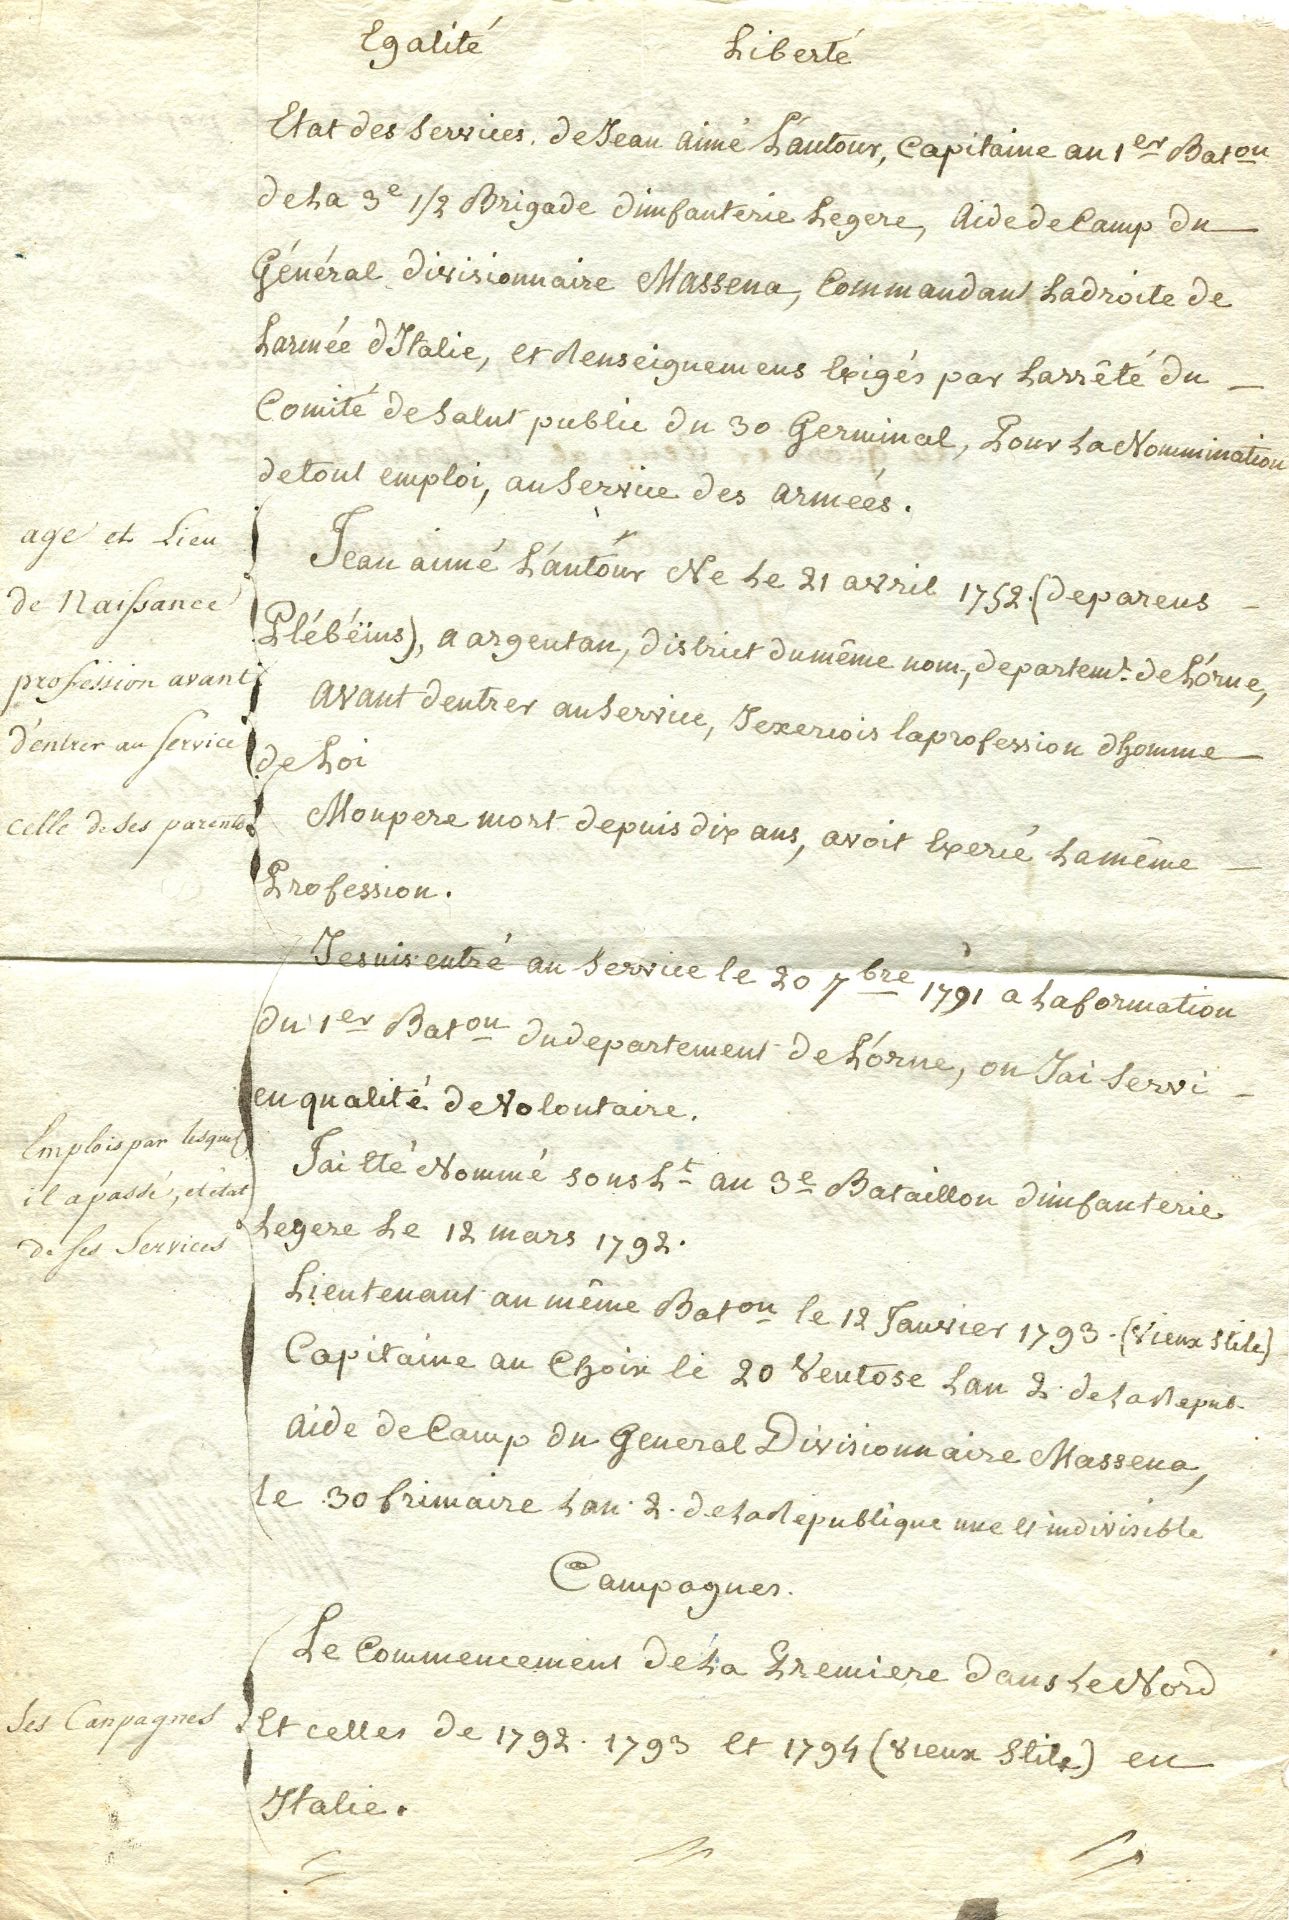 Egalité Liberté
Etat des Services de Jean aimé Lautour, Capitaine au 1er Baton
de La 3e 1/2 Brigade dinfanterie Legere, aide de Camp du
Général divisionnaire Massena, Commandant La droite de
Larmée dItalie, et Renseignemens Exigés par Larrêté du
Comité de Salut public du 30 Germinal, Pour La Nommination
de tout emploi, au Service des armées.
age et Lieu
de Naissance
Jean aimé Lautour Ne Le 21 avril 1752 (de parens
Plébéïns), a argentan, district du même nom, departemt. de L'orne,
profession avant
d'entrer au service
avant dentrer au Service, Jexercois la profession dhomme
de Loi
celle de ses parents
Mon pere mort depuis dix ans, avoit Exercé La même
Profession.
Je suis entré au Service le 20 7bre 1791 a La formation
du 1er Baton du departement de L'orne, ou Jai Servi
en qualité de Volontaire.
Emplois par lesquels
il a passé, et état
de ses Services
Jai Eté Nommé sous Lt au 3e Bataillon dinfanterie
Legere Le 12 mars 1792.
Lieutenant au même Baton le 12 Janvier 1793. (vieux Stile)
Capitaine au Choix le 20 Ventose Lan 2 de La Repub.
aide de Camp du General Divisionnaire Massena,
le 30 frimaire Lan 2. de La Republique une et indivisible
Campagnes.
Ses Canpagnes
Le Commencement de La Premiere dans Le Nord
Et celles de 1792. 1793 Et 1794 (vieux Stile) en
Italie.